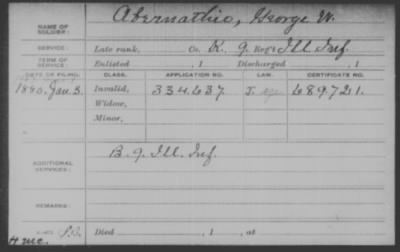 NAME OF SOLDIER: Abernathie, George W.
SERVICE: Late rank, Co. K, 9 Reg't Ill Inf.
TERM OF SERVICE: Enlisted , 1 Discharged , 1
DATE OF FILING. CLASS. APPLICATION NO. LAW. CERTIFICATE NO.
1880. Jan. 3. Invalid, 334.637 J. 689.721.
Widow,
Minor,
ADDITIONAL SERVICES: B. 9. Ill. Inf.
REMARKS:
Died , 1 , at